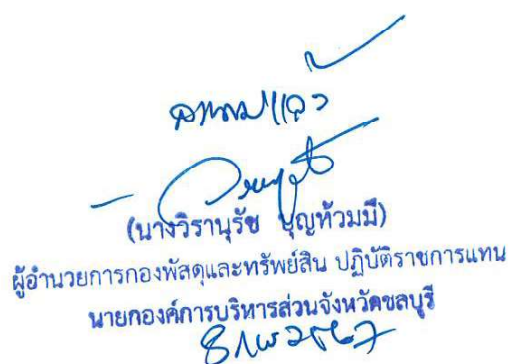 ลงนามแล้ว
(นางวิรานุรัช บุญท้วมมี)
ผู้อำนวยการกองพัสดุและทรัพย์สิน ปฏิบัติราชการแทน
นายกองค์การบริหารส่วนจังหวัดชลบุรี
2567